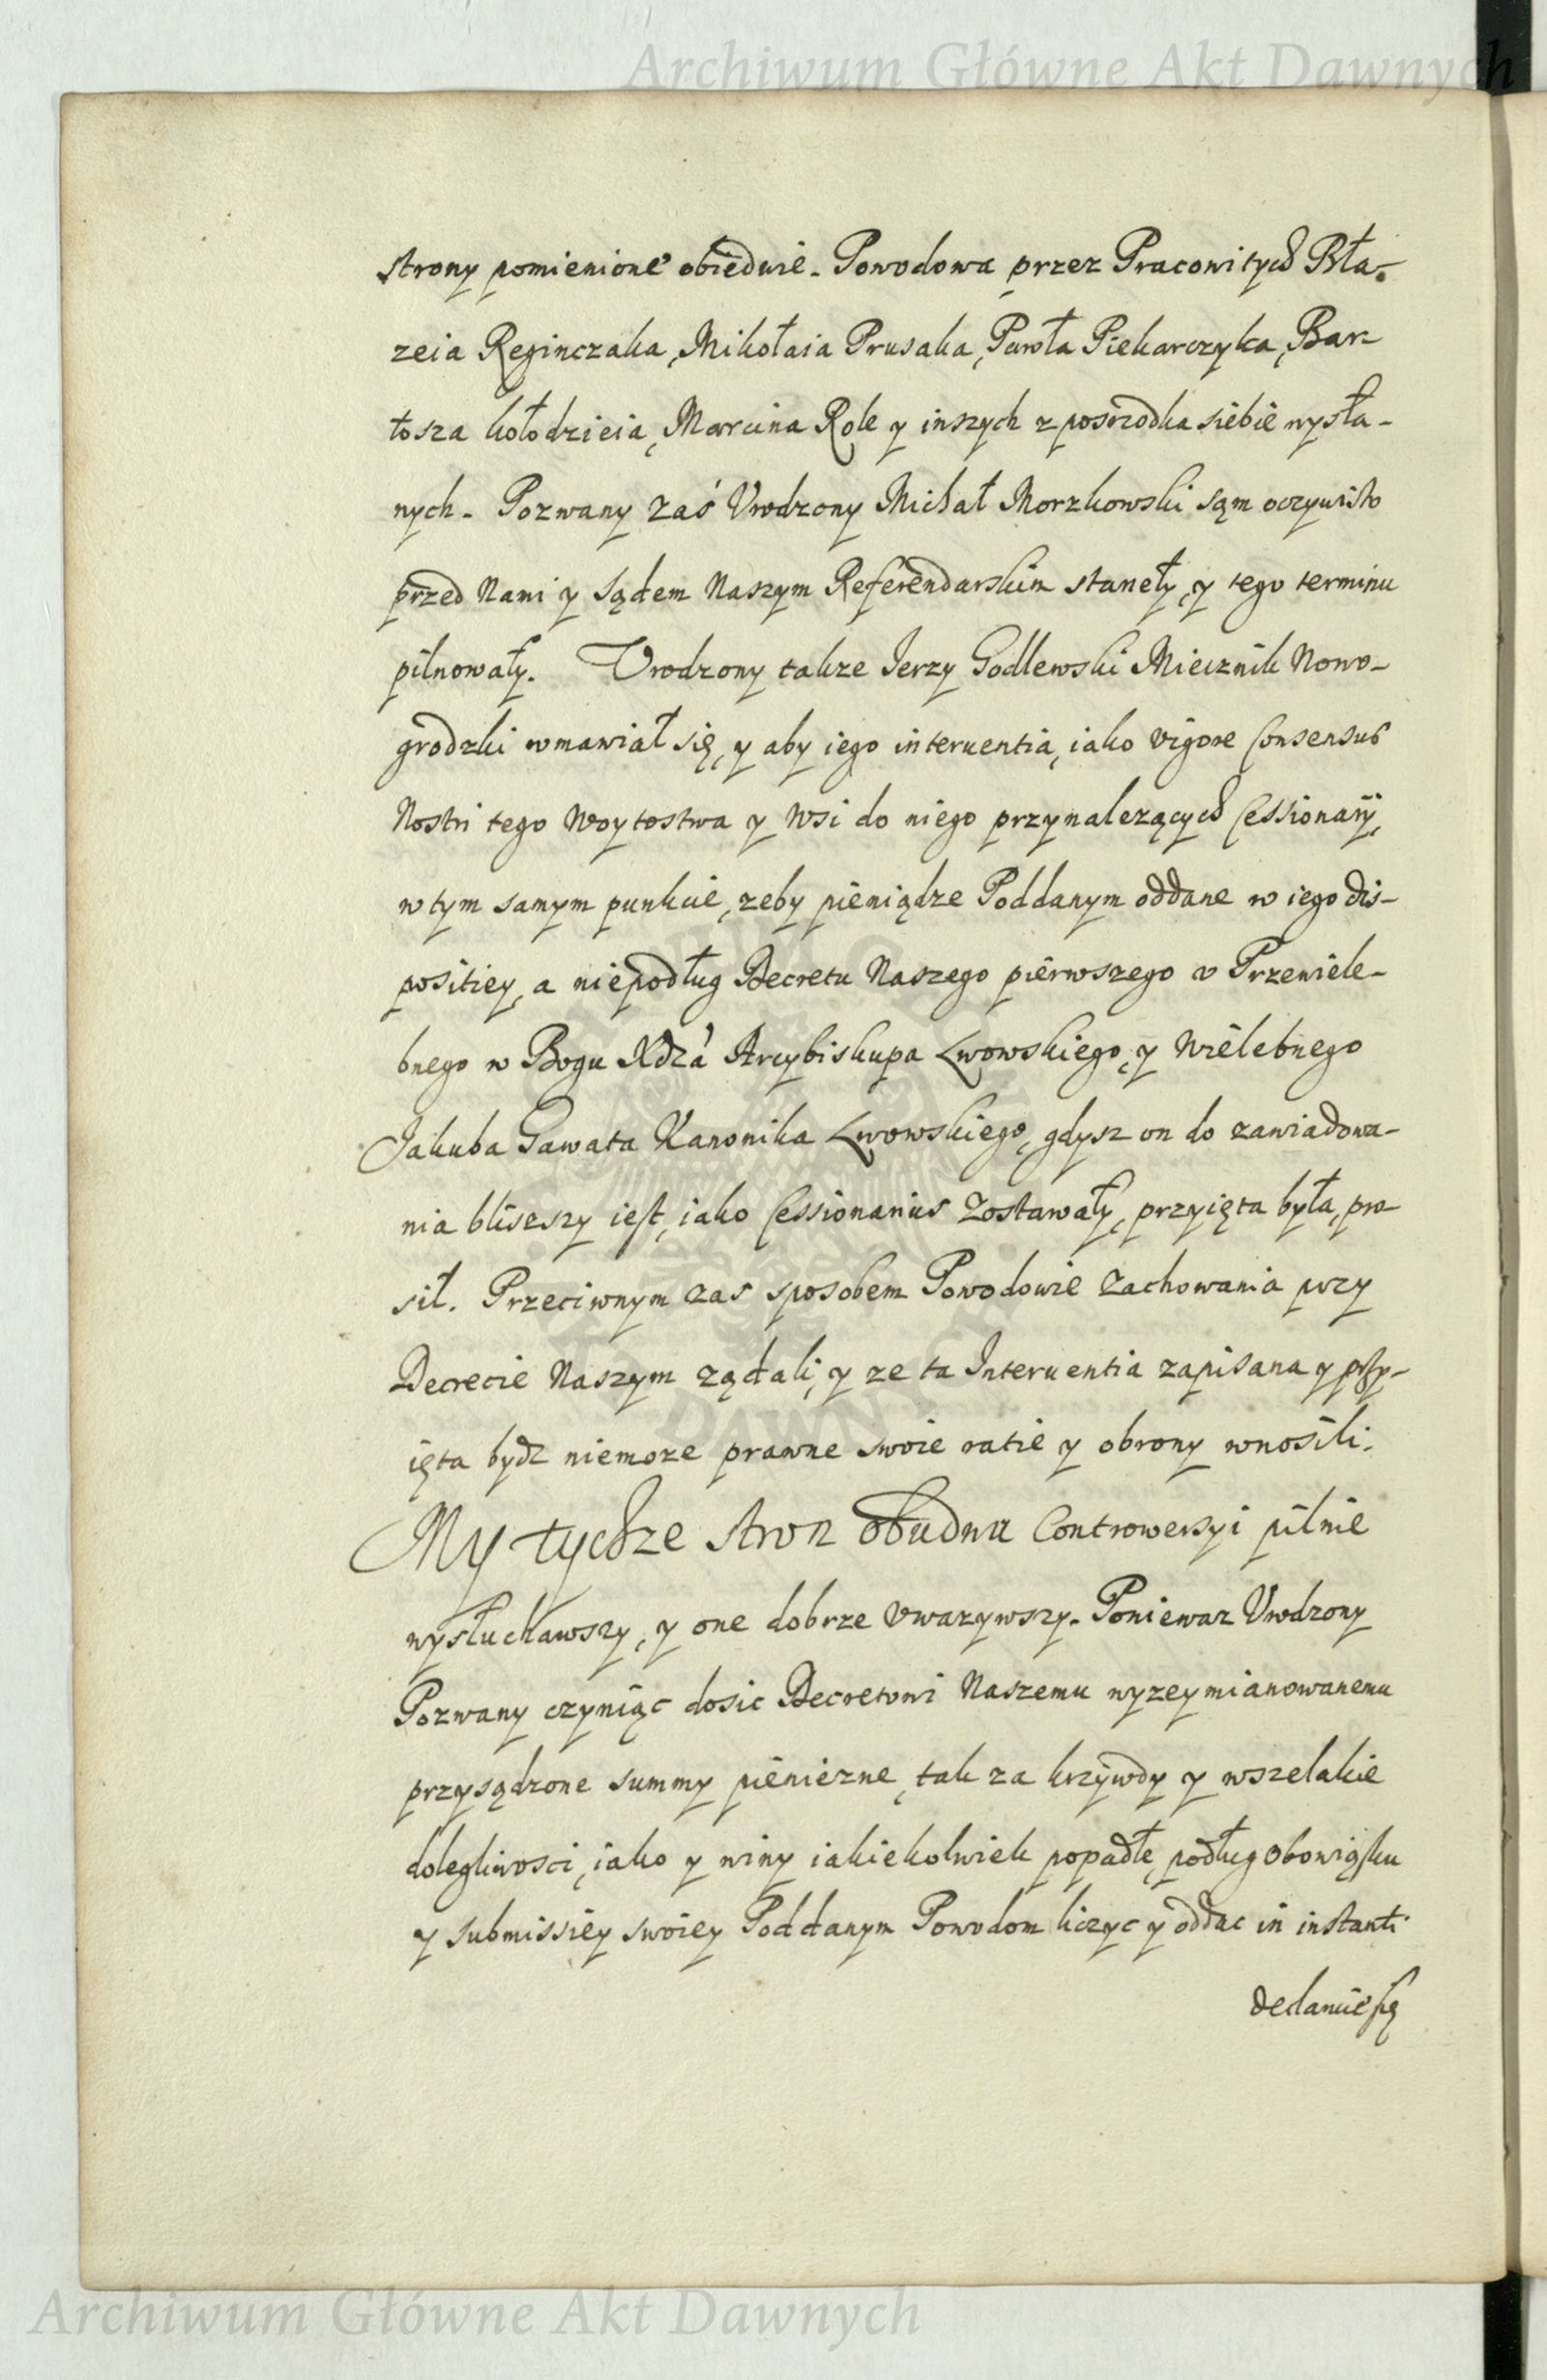 Archiwum Główne Akt Dawnych
strony pomienione obiedwie. Powodowa przez Pracowitych Bła-
zeia Reginczaka, Mikołaia Prusaka, Pawła Piekarczyka, Bar-
tosza kołodzieia, Marcina Role y inszych z posrzodka siebie wysła-
nych. Pozwany zaś Vrodzony Michał Morzkowski sąm oczywisto
przed Nami y Sądem Naszym Referendarskim staneły, y tego terminu
pilnowały. Vrodzony takze Jerzy Godlewski Miecznik Nowo-
grodzki wmawiał się, y aby iego interuentia, iako vigore Consensus
Nostri tego Woytostwa y Wsi do niego przynalezących Cessionarij,
w tym samym punkcie, zeby pieniądze Poddanym oddane w iego dis-
positiey, a niepodług Decretu Naszego pierwszego v Przewiele-
bnego w Bogu Xdza Arcybiskupa Lwowskiego, y Wielebnego
Jakuba Gawata Kanonika Lwowskiego, gdysz on do zawiadowa-
nia bliseszy iest, iako Cessionarius Zostawały, przyięta była, pro
sił. Przeciwnym zas sposobem Powodowie Zachowania przy
Decrecie Naszym ządali, y ze ta Interuentia zapisana y przy-
ięta bydz niemoze prawne swoie ratie y obrony wnosili.
My tychze stron obudwu Controwersyi pilnie
wysłuchawszy, y one dobrze vwazywszy. Poniewaz Vrodzony
Pozwany czyniąc dosic Decretowi Naszemu wyzeymianowanemu
przysądzone summy pieniezne, tak za krzywdy y wszelakie
dolegliwosci, iako y winy iakiekolwiek popadłe, podług obowiąsku
y submissiey swoiey Poddanym Powodom liczyc y oddac in instanti
declaruie się
Archiwum Główne Akt Dawnych